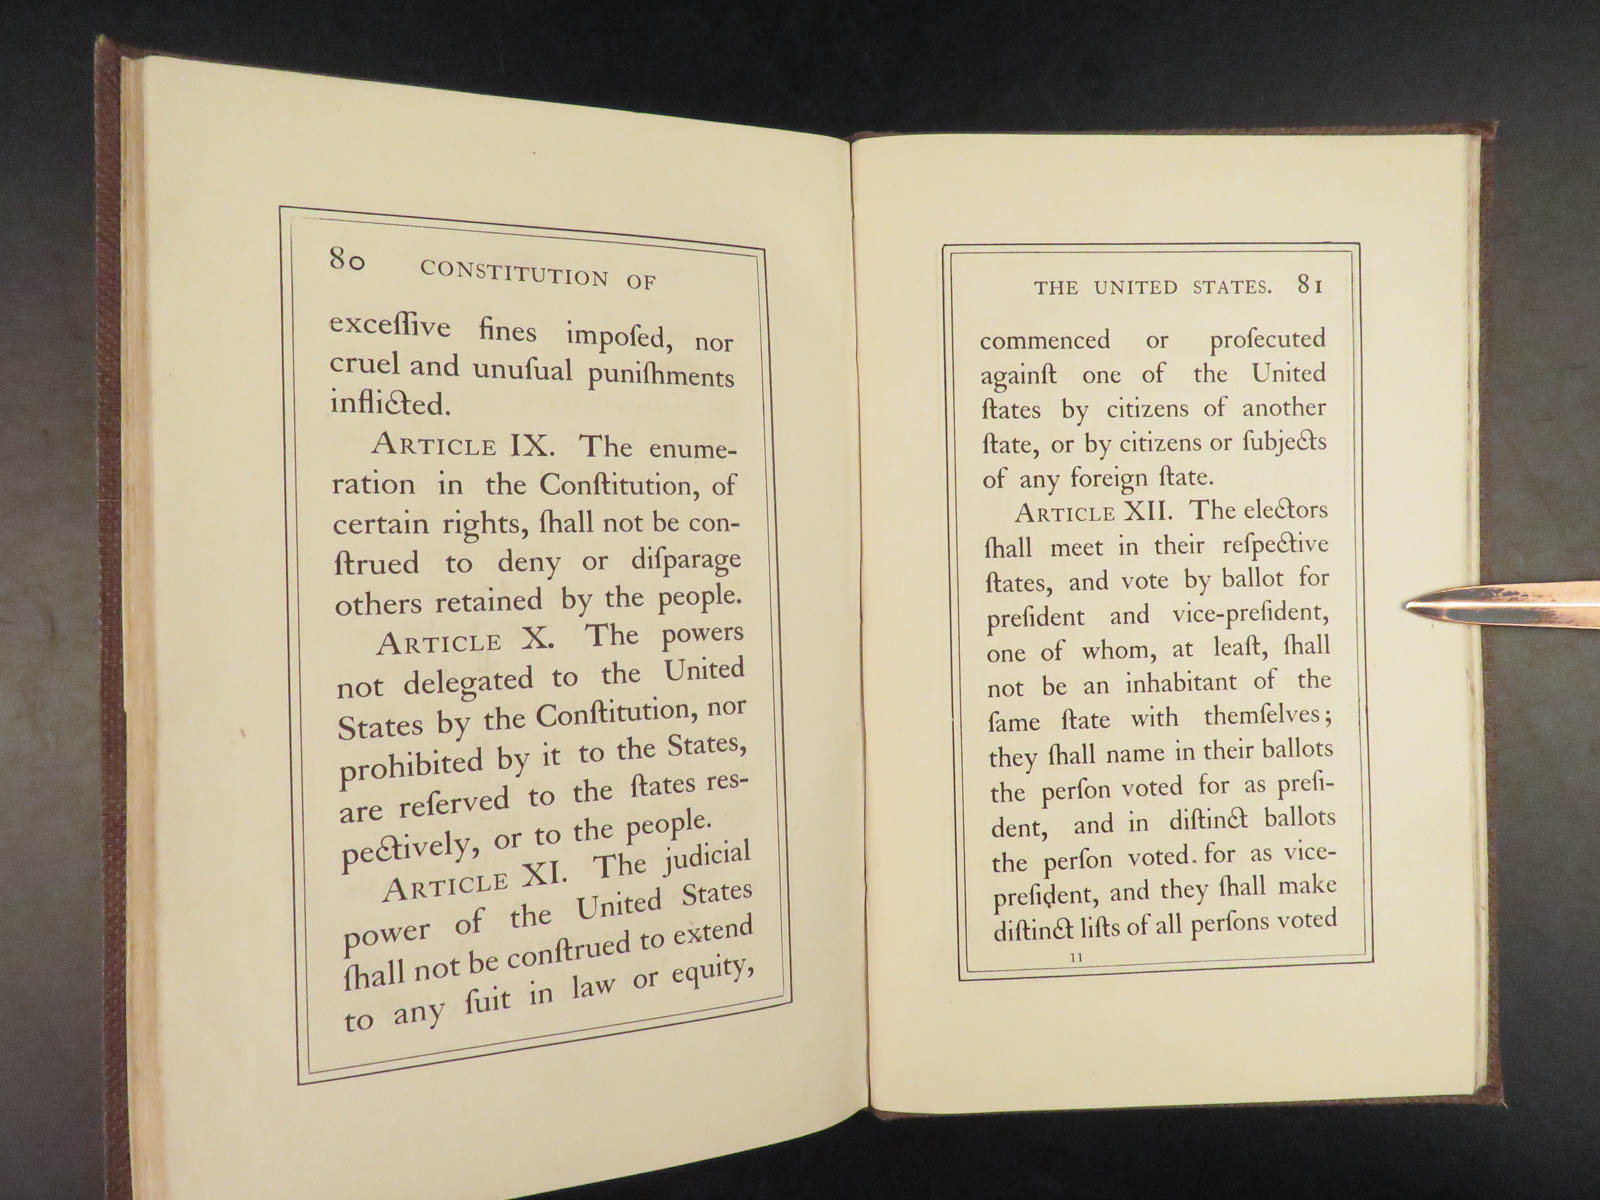 80 CONSTITUTION OF
exceſſive fines impoſed, nor
cruel and unuſual puniſhments
inflicted.
ARTICLE IX. The enume-
ration in the Conſtitution, of
certain rights, ſhall not be con-
ſtrued to deny or diſparage
others retained by the people.
ARTICLE X. The powers
not delegated to the United
States by the Conſtitution, nor
prohibited by it to the States,
are reſerved to the ſtates res-
pectively, or to the people.
ARTICLE XI. The judicial
power of the United States
ſhall not be conſtrued to extend
to any ſuit in law or equity,
THE UNITED STATES. 81
commenced or proſecuted
againſt one of the United
ſtates by citizens of another
ſtate, or by citizens or ſubjects
of any foreign ſtate.
ARTICLE XII. The electors
ſhall meet in their reſpective
ſtates, and vote by ballot for
preſident and vice-preſident,
one of whom, at leaſt, ſhall
not be an inhabitant of the
ſame ſtate with themſelves;
they ſhall name in their ballots
the perſon voted for as preſi-
dent, and in diſtinct ballots
the perſon voted. for as vice-
preſident, and they ſhall make
diſtinct liſts of all perſons voted
11